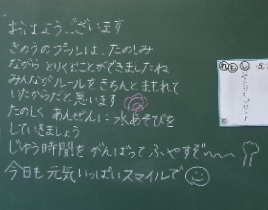 おはようございます
きのうのプールは、たのしみ
ながら とりくむことができましたね
みんながルールをきちんとまもれて
いたからだと思います
たのしく あんぜんに 水あそびを
していきましょう
じゆう時間を がんばって ふやすぞ〜〜
今日も 元気いっぱいスマイルで